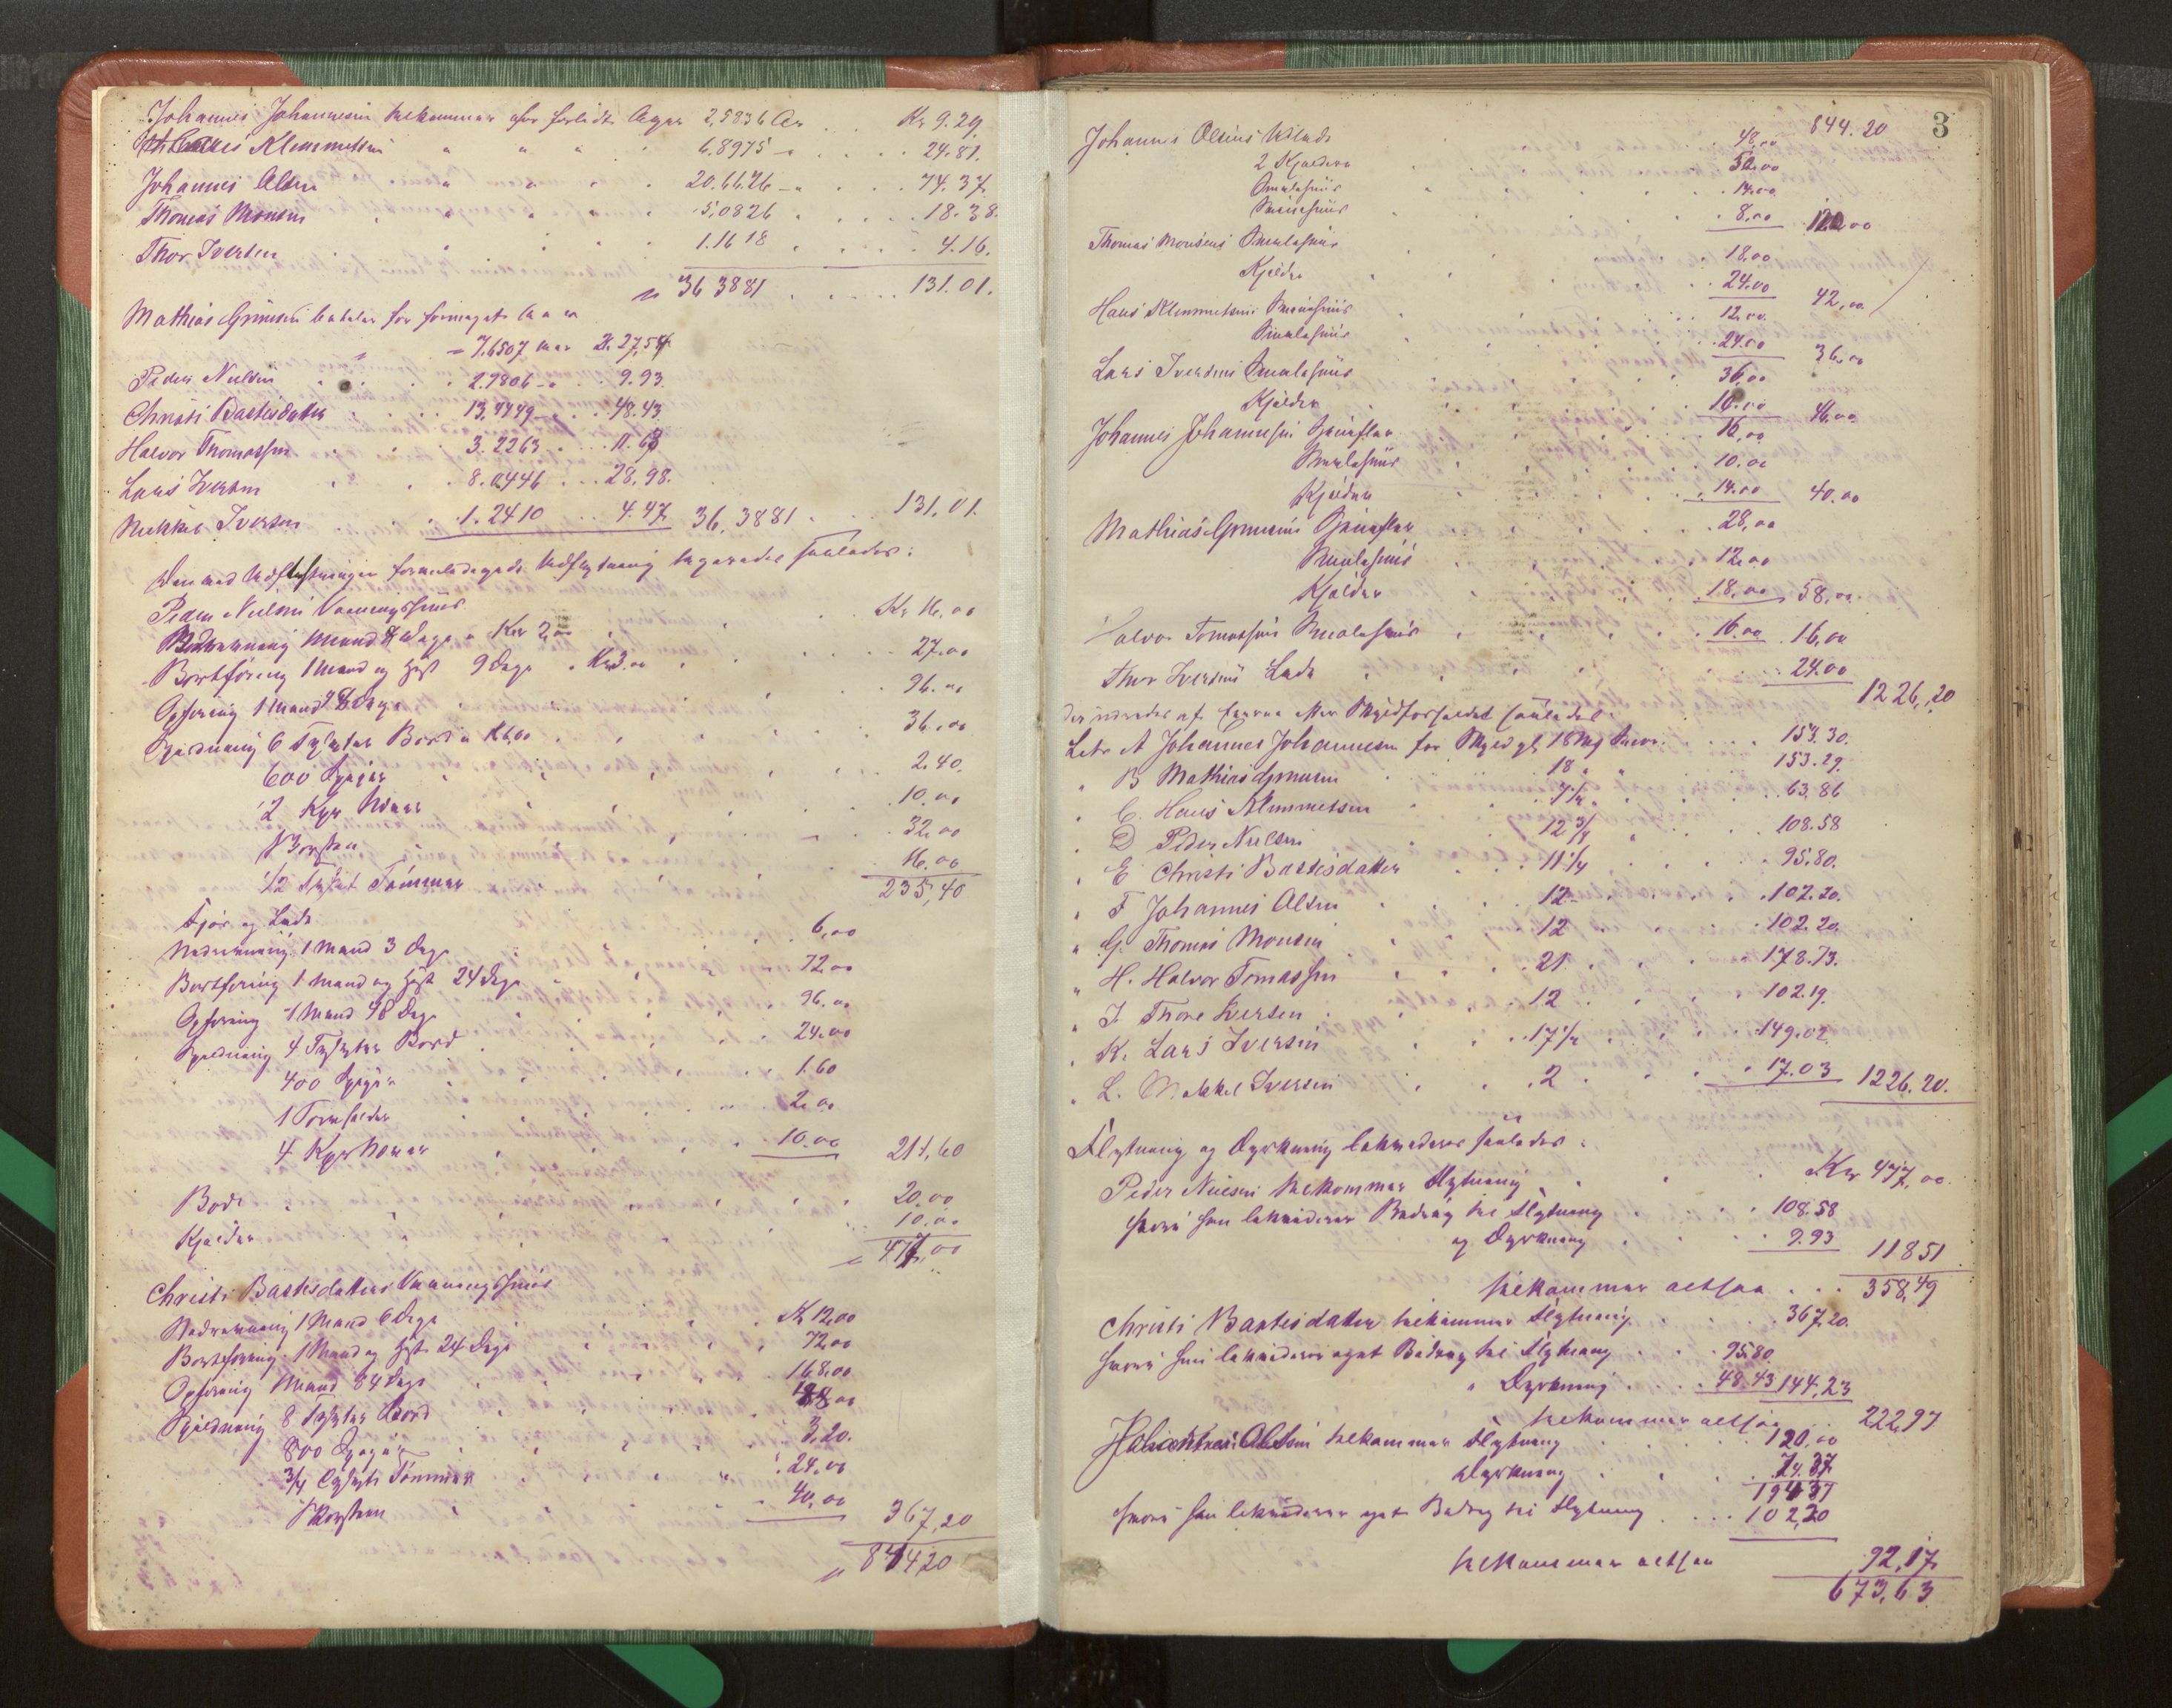 Johannes Johannesen tilkommer for forlidt Ager 2,5836 Ar Kr 9.29.
Klemmetsen " " " 6.8975 24.81.
Johannes Olsen " " " 20.6626 74.37
Thomas Monsen " " " 5,0826 18.38.
Thor Iversen " " " 1.1618 4.16.
" 36 3881 131.01.
Mathias Grimsen betaler for formeget
= 7.6507 27,54
Peder Nielsen 2.7806 9.93.
Christi Bastesdatter 13.4449 48.43
Halvor Thomassen 3.2263 11.63
Lars Iversen 8.0446 28.98.
Mikkel Iversen 1.2410 4.47 36,3881 131,01.
Den ved Udskiftningen Udflytning saaledes:
Peder Nielsens Vaaningshuus
Nedrivning 1 Mand 8 Dage a Kr 2,00 Kr 16,00
Bortføring 1 Mand og Hest 9 Dage a Kr 3,00 27,00
Opføring 1 Mand 48 Dage 96.00
Spildning 6 Tylvter Bord a K 6,00 36,00
600 Spiger 2.40.
2 Kgr Never 10.00
Skorsten 32,00
1/2 Tylvt Tømmer 16.00
235,40
Fjøs og Lade
Nedrivning 1 Mand 3 Dage 6,00
Bortføring 1 Mand og Hest 24 Dage 72,00
Opføring 1 Mand 48 Dage 96.00
Spildning 4 Tylvter Bord 24,00
400 Spiger 1.60
1 2,00
4 Kgr Never 10.00 211,60
Bod 20,00
Kjelder 10.00
" 477,00
Christi Bastesdatters Vaaningshuus
Nedrivning 1 Mand 6 Dage Kr 12,00
Bortføring 1 Mand og Hest 24 Dage 72,00
Opføring 1 Mand 84 Dage 168,00
Spildning 8 Tylvter Bord 48,00
800 Spiger 3,20.
3/4 Tylvt Tømmer 24,00
Skorsten 40,00 367,20
" 844,20
3
844.20
Johannes Olsens Udlade 48,00
2 Kjeldere 50,00
Smalehuus 14,00
8,00 120,00
Thomas Monsens Smalehuus 18,00
Kjelder 24.00 42,00
Hans Klemmetsens 12,00
Smalehuus 24.00 36,00
Lars Iversens Smalehuus 36,00
Kjelder 10.00 46,00
Johannes Johannesens 16,00
Smalehuus 10.00
Kjelder 14.00 40.00
Mathias Grimsens 28,00
Smalehuus 12,00
Kjelder 18,00 58,00
Halvor Tomassens Smalehuus 16.00 16,00
Thor Iversens Lade 24.00
1226,20
der udredes af efter Skyldforholdet saaledes:
Litr A Johannes Johannesen for Skyld 18 153.30.
" B Mathias Grimsen 18 153.29.
" C. Hans Klemmetsen 7 1/2 63.86
" D Peder Nielsen 12 3/4 108.58
" E Christi Bastesdatter 11 1/4 95.80.
" F Johannes Olsen 12 102.20.
" G. Thomas Monsen 12 102.20.
" H. Halvor Tomassen 21 178.73.
" I Thore Iversen 12 102.19.
" K. Lars Iversen 17 1/2 149.02
" L. Mikkel Iversen 2 17.03 1226.20.
Flytning og Dyrkning likvideres saaledes:
Peder Nielsen tilkommer Flytning Kr 477,00.
hvori han likviderer Bidrag til Flytning 108.58
og Dyrkning 9.93 118 51
tilkommer altsaa 358,49
Christi Bastesdatter tilkommer Flytning 367,20.
hvori hun likviderer eget Bidrag til Flytning 95.80.
" Dyrkning 48.43 144,23
tilkommer altsaa 222,97
Johannes Olsen tilkommer Flytning 120,00
Dyrkning 74.37
194 37
hvori han likviderer eget Bidrag til Flytning 102,20
tilkommer altsaa 92,17
673,63